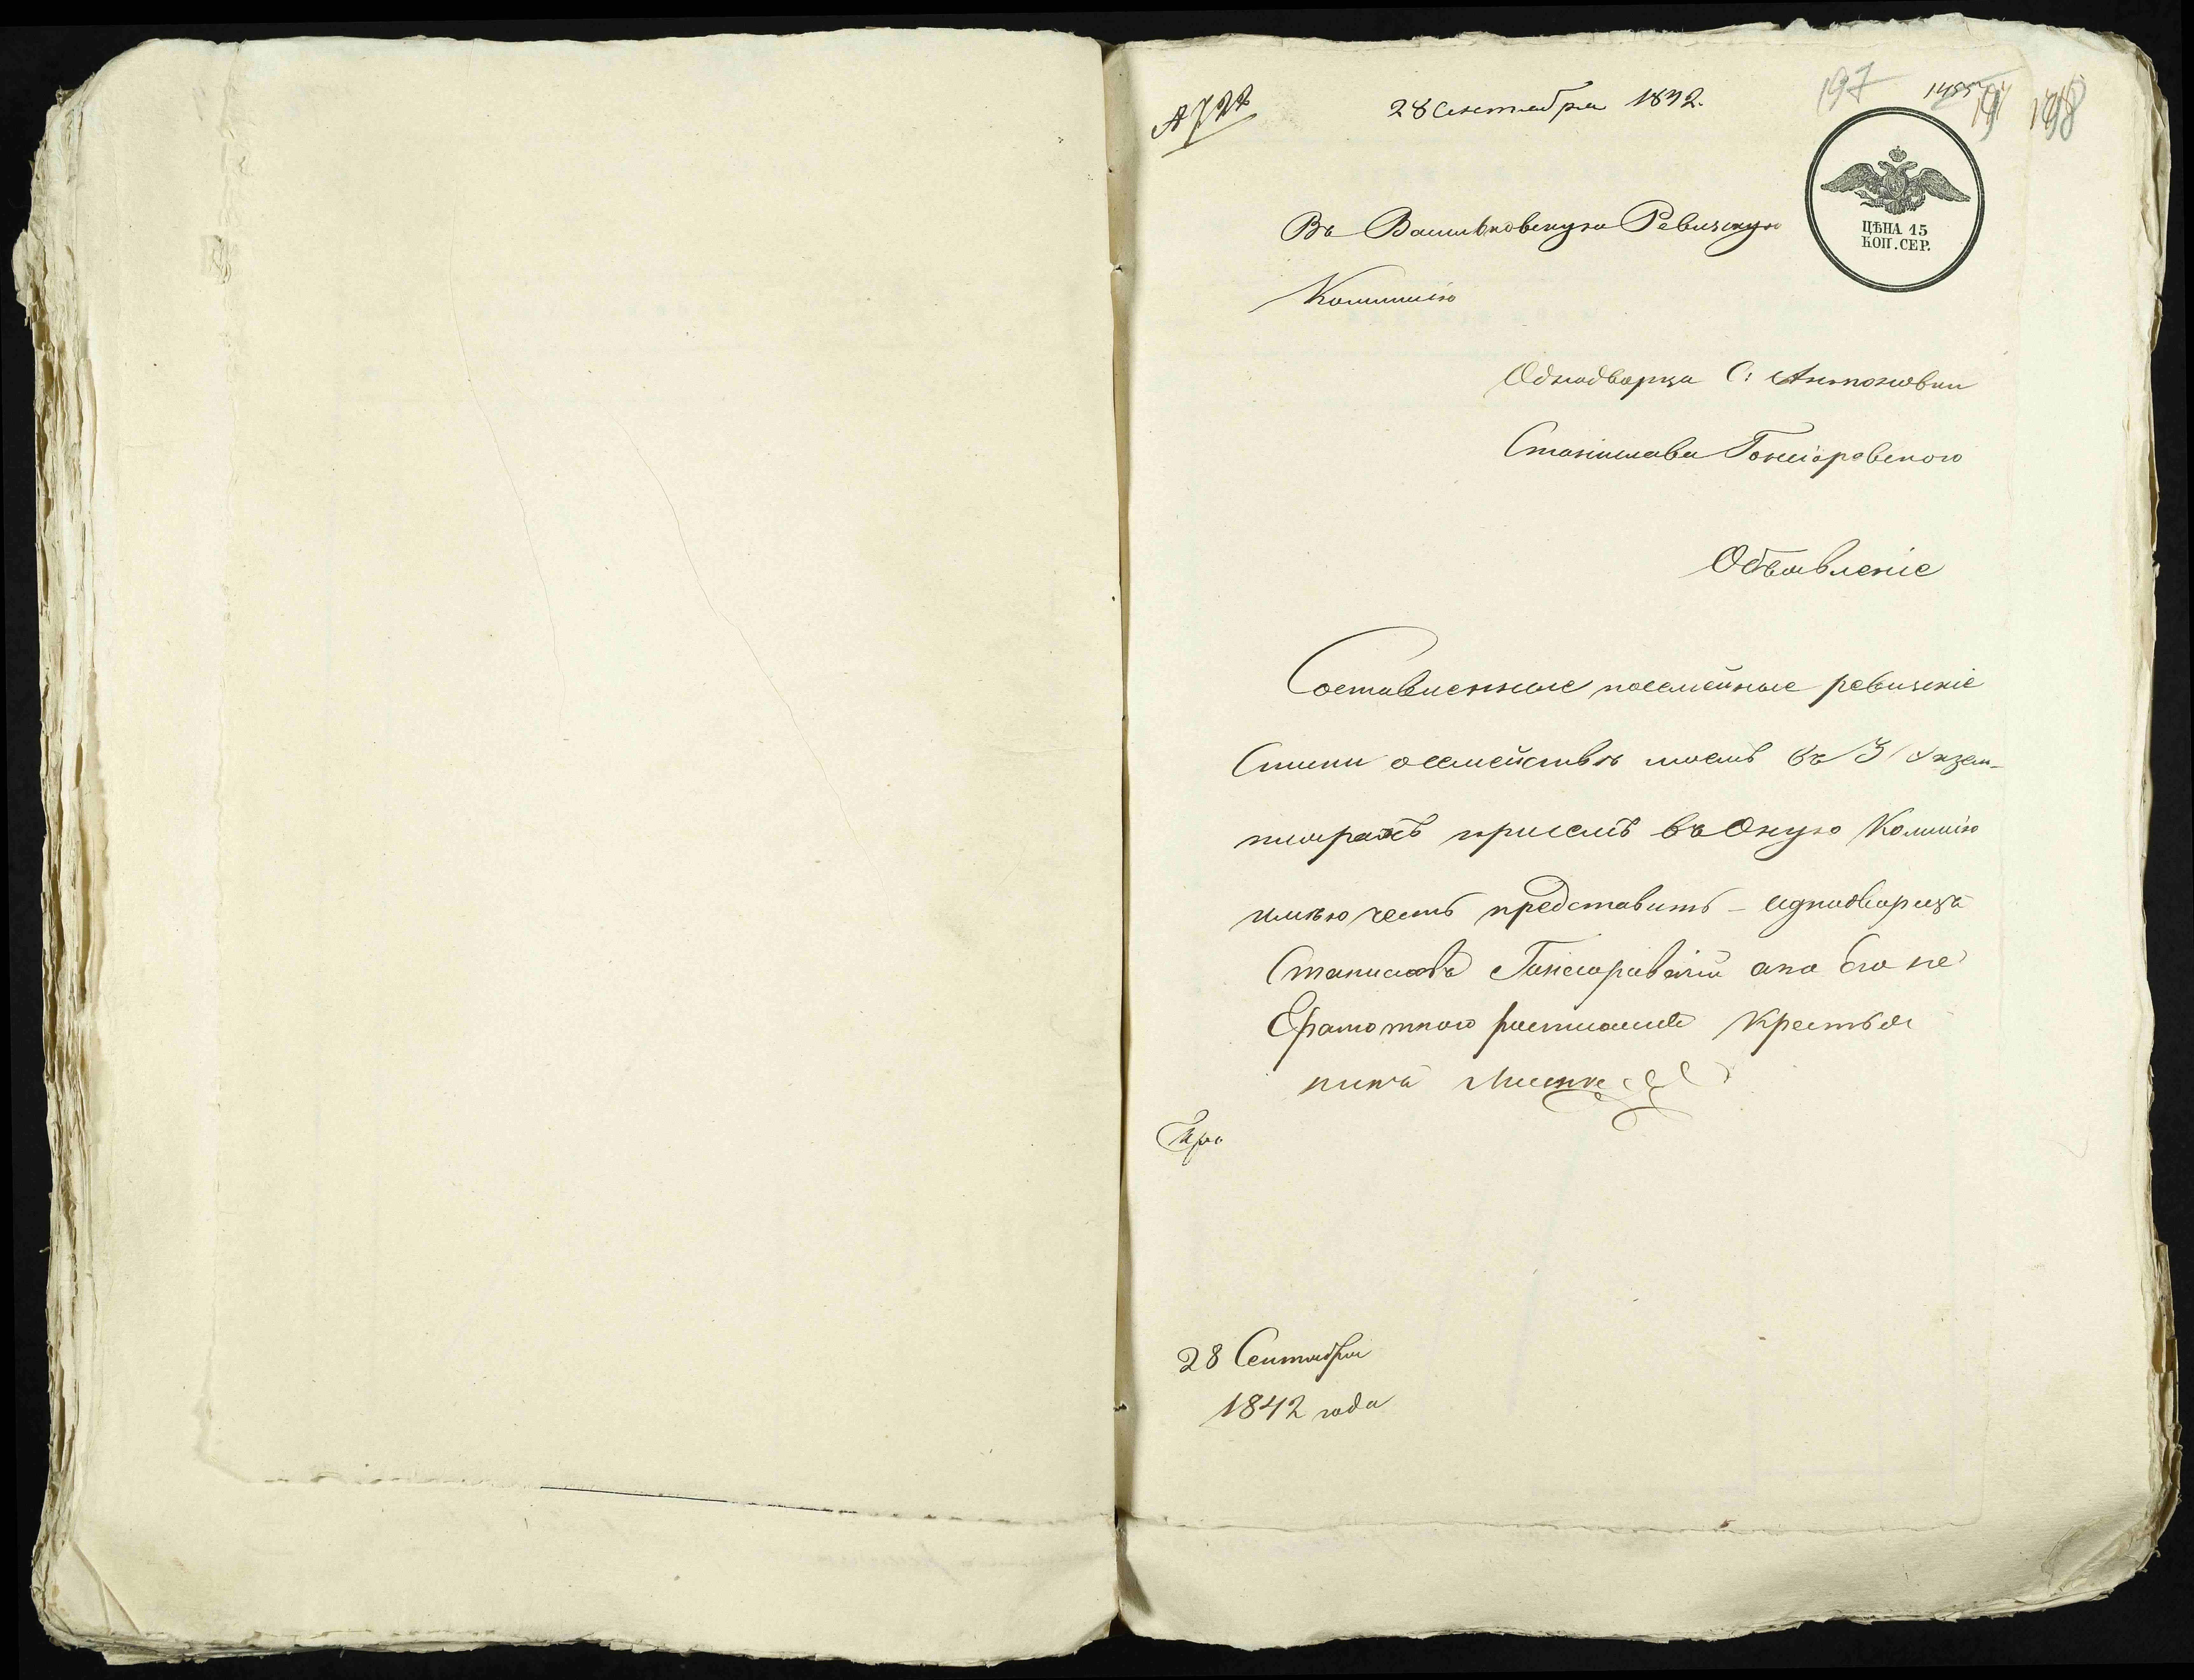 28 Сентября 1842.
197
1455
191
198
ЦѢНА 15
КОП. СЕР.
Въ Васильковскую Ревизскую
Коммисію
Однодворца С: Антоновки
Станислава Гонсіоровского
Объявленіе
Составленные посемейные ревизскіе
Списки о семействѣ моемъ въ 3 экзем-
плярахъ присемъ въ Оную Комисію
имѣю честь представить – однодворецъ
Станиславъ Гонсіоровскій а за его не
Грамотного росписался Крестья
нинъ
28 Сентября
1842 года